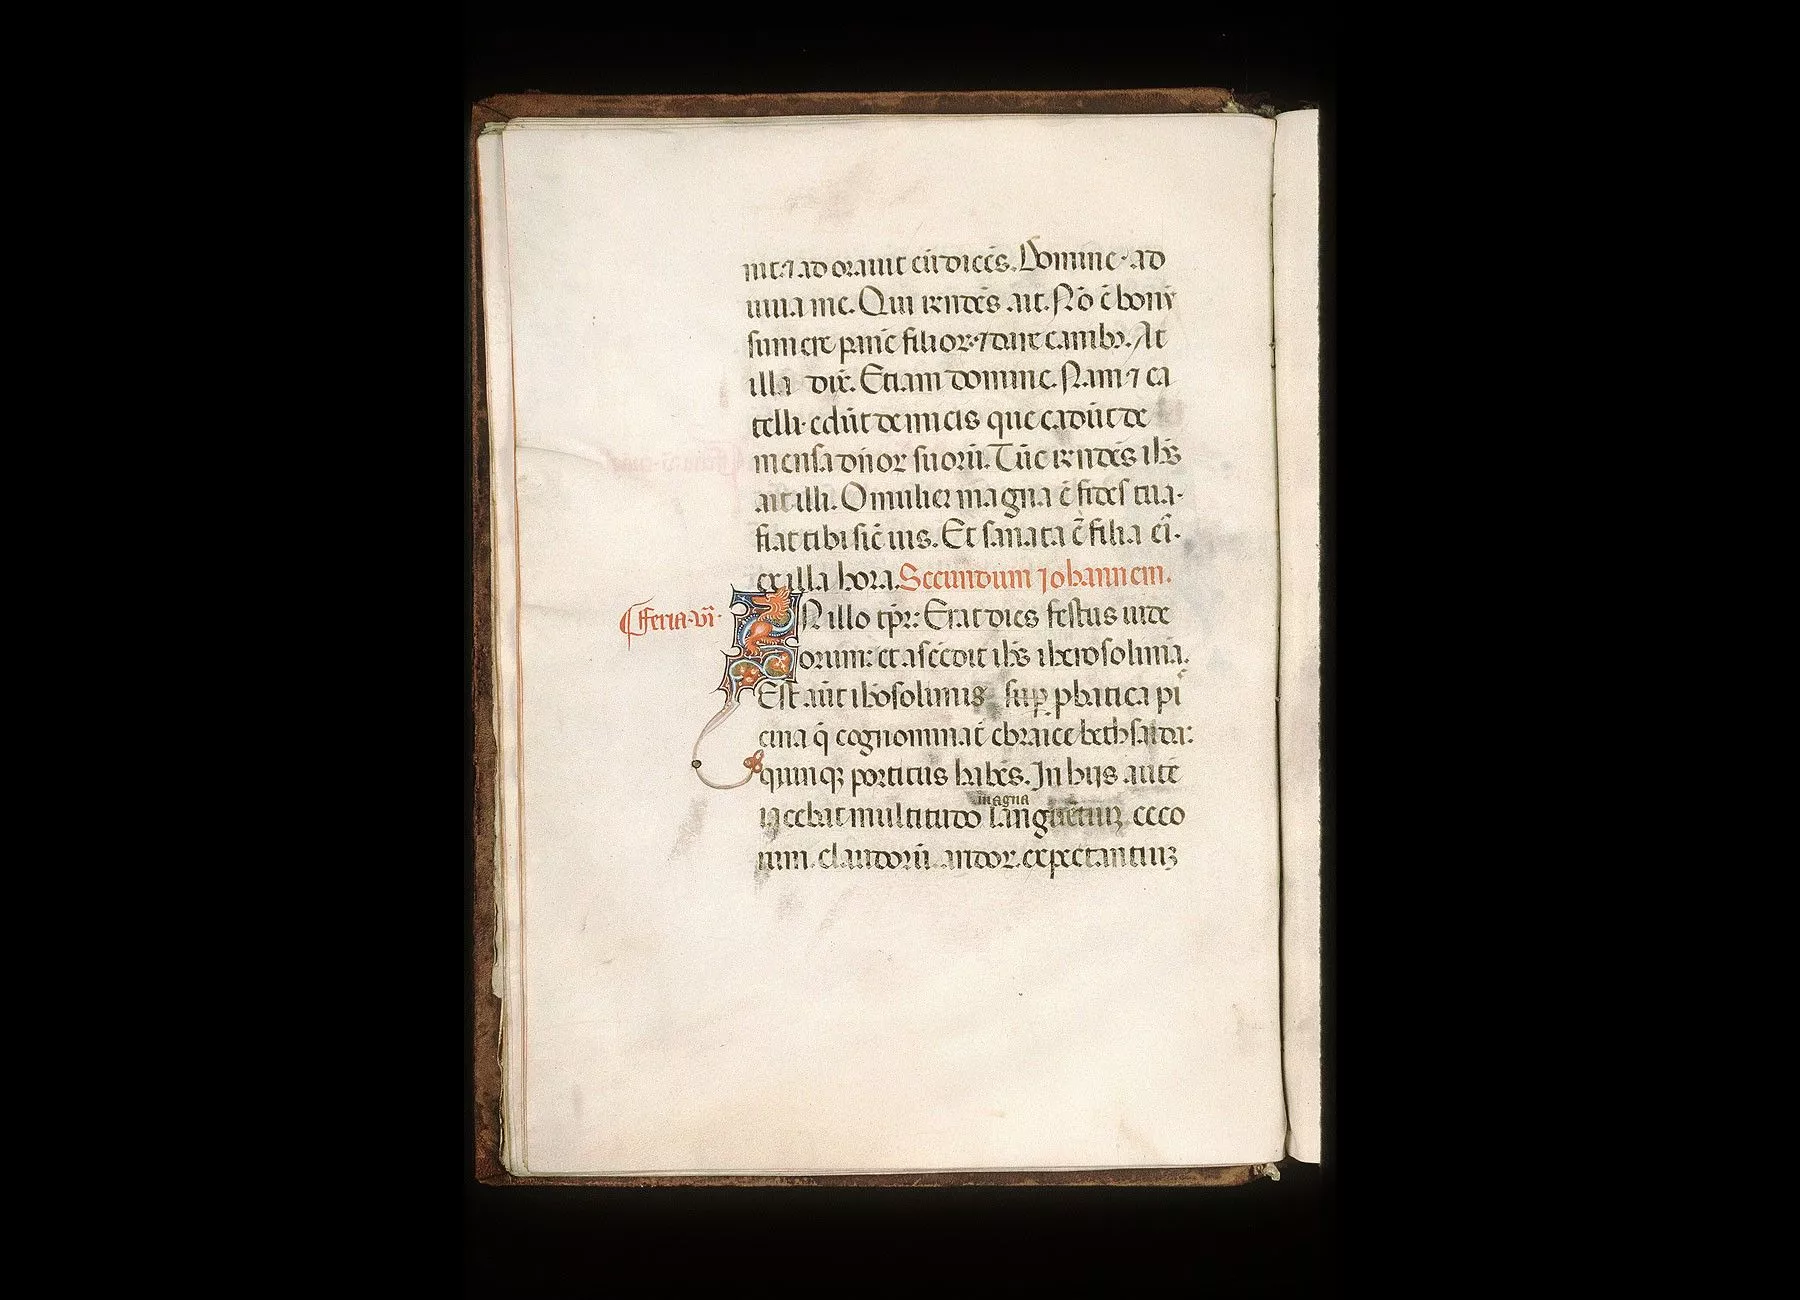 nit ⁊ adorauit eū dicēs. Domine ad
iuua me. Qui r̄ndēs ait. Nō ē bonū
sumere panē filior ⁊ dare canibꝫ. At
illa dix̄. Etiam domine. Nam ⁊ ca
telli edūt de micis que cadūt de
mensa dn̄or suorū. Tūc r̄ndēs ih̄s
ait illi. O mulier magna ē fides tua.
fiat tibi sic̄ uis. Et sanata ē filia ei.
ex illa hora. Secundum Johannem.
¶ feria. vi. IN illo tp̄r: Erat dies festus iude
orum: et ascēdit ih̄s iherosolimā.
Est aūt ih̄osolimis sup̱ p̱batica pi
cina q̄ cognominat̄ ebraice bethsaida:
quinqꝫ porticus habēs. In hijs autē
iacebat multitudo magna languētiuꝫ ceco
rum. claudorū aridor. expectantiuꝫ